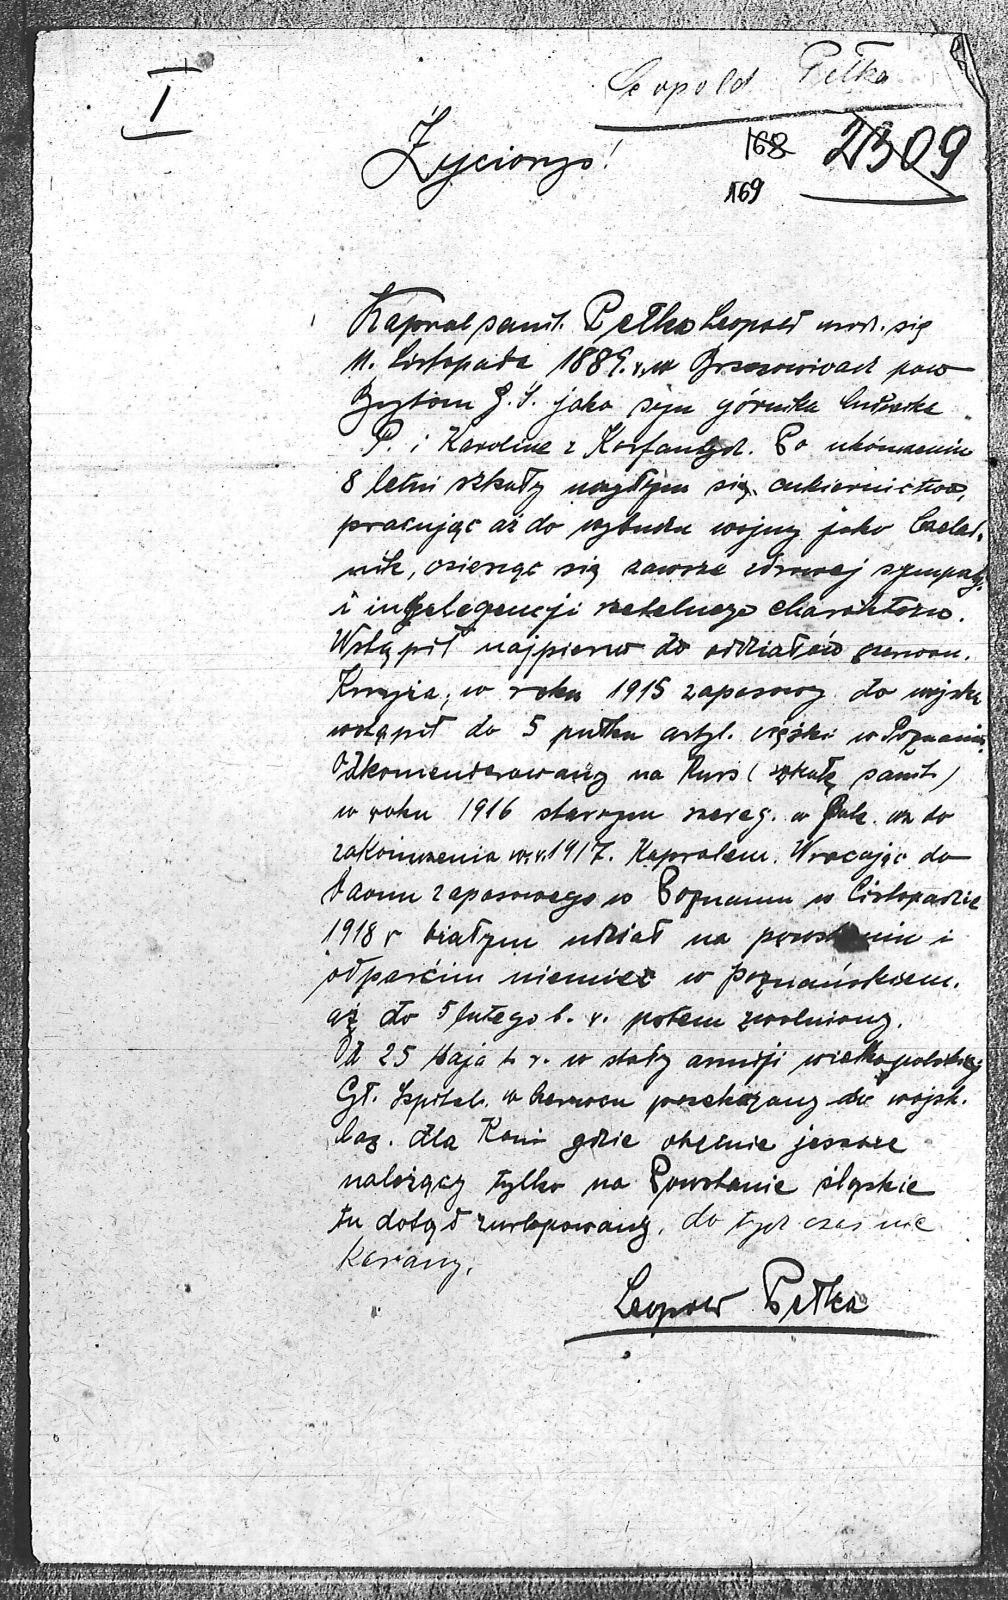 I
Leopold Pełka
Życiorys!
168 2309
169
Kapral sanit. Pełka Leopold urodz. się
11. Listopada 1889. r. w Brzozowicach pow
Bytom G. Ś. jako syn górnika Ludwika
P. i Karoline z Korfantych. Po ukończeniu
8 letni szkoły się cukiernictwa,
pracując aż do wybuchu wojny jako Czelad.
nik, ciesząc się zawsze zdrowej sympaty.
i inteligencji rzetelnego charakteru.
Wstąpił najpierw do oddziałów czerwon.
Krzyża, w roku 1915 zapasowy do wojska
wstąpił do 5 pułku artyl. ciężki w Poznaniu
Odkomenderowany na Kurs (szkołę sanit.)
w roku 1916 starszym szereg. w do
zakończenia w r. 1917. Kapralem. Wracając do
zapasowego w Poznaniu w Listopadzie
1918 r białym udział na powstaniu i
odparćim niemiec w poznańskiem.
aż do 5 lutego b. r. potem zwolniony.
Od 25 Maja b r. w armji wielkopolskiej
Gł. Szpital. w Czerwcu przekazany do wojsk.
laz. dla Koni gdzie obecnie jeszcze
należący tylko na Powstanie śląskie
tu dotąd zurlopowany. do tych czas nie
karany.
Leopold Pełka